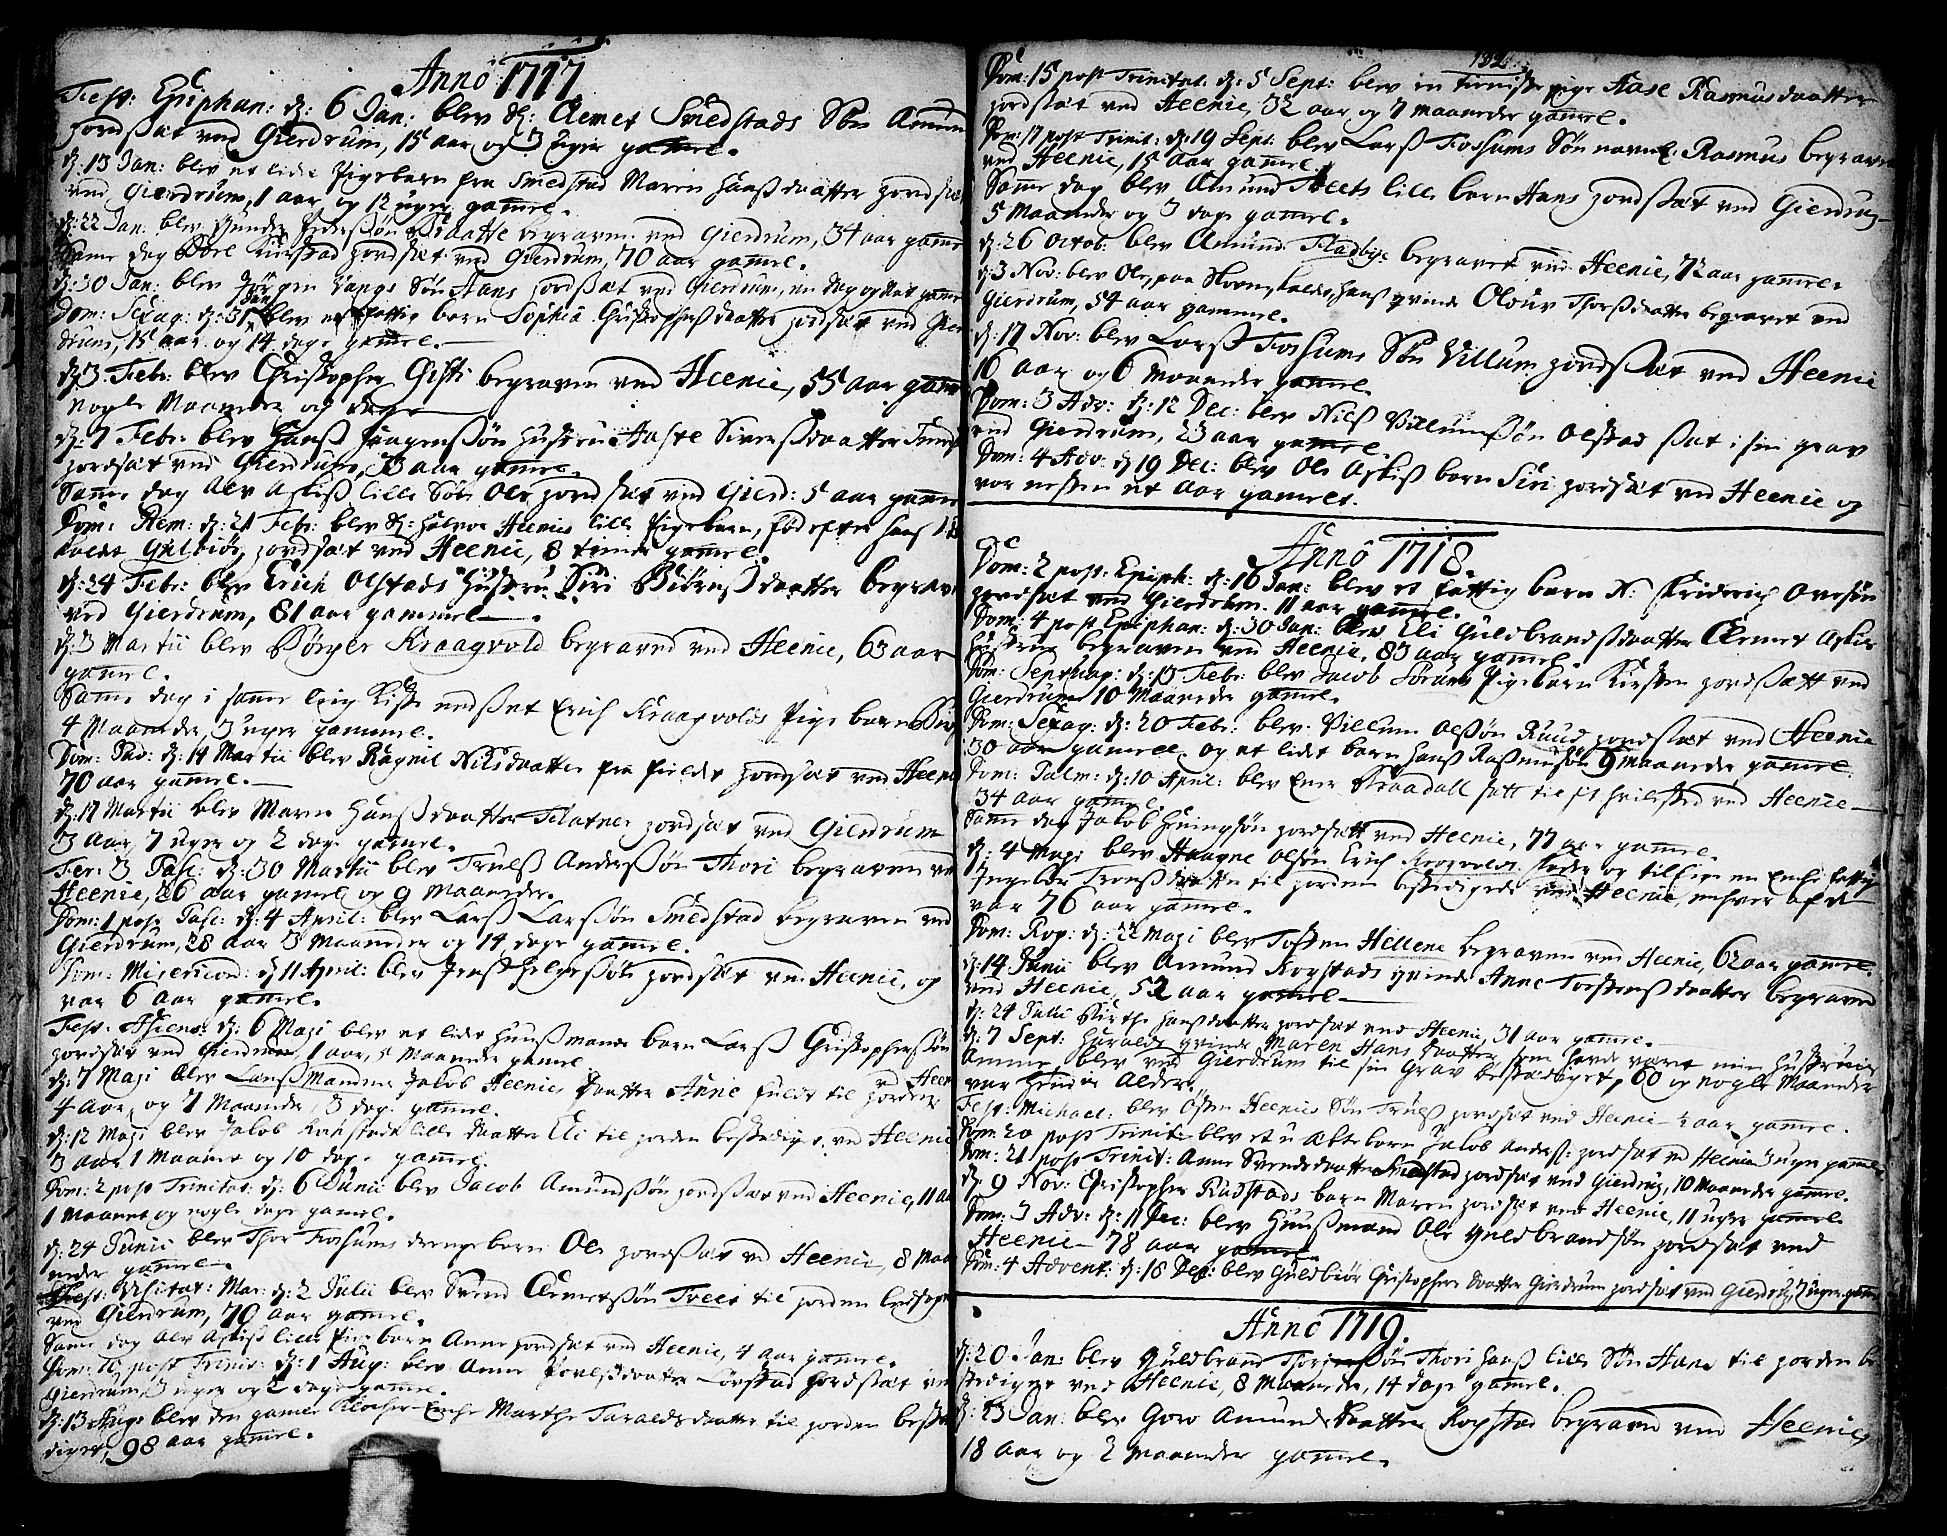 Anno 1717
Fest: Epiphan: d: 6 Jan: blev Hr: Clemet Smedstads Søn Amund
jordsat ved Gierdrum, 15 aar og 3 uger gamel.
d: 13 Jan: blev et lidet Pigebarn fra Smedstad Maren Hanssdaatter jordsat
ved Gierdrum, 1 aar og 12 uger gamel.
d: 22 Jan: blev Gunder Pederssøn Braatte begraven ved Gierdrum, 34 aar gamel
Same dag Kirstad jordsat ved Gierdrum, 70 aar gamel.
d: 30 Jan: blev Jørgen Vangs Søn Hans jordsat ved Gierdrum, en dag og Nat gamel
Dom: Sexag: d: 31 Jan: blev et fattig barn Sophia Christophersdaatter jordsat ved Gier
drum, 15 aar og 14 dage gamel.
d: 3 Febr: blev Christopher Gisti begraven ved Heenie, 55 aar gamel
nogle Maaneder og dage
d: 7 Febr: blev Hanss Haagenssøn Hustru Aaste Siverssdaatter
jordsat ved Gierdrum, 73 aar gamel.
Same dag Alv Askiss lille Søn Ole jordsat ved Gierd: 5 aar gamel
Dom: Rem: d: 21 Febr: blev Hr: Halvor Heenies lille Pigebarn, fød efter hans død
kaldet Guldbiør, jordsat ved Heenie, 8 timer gamel.
d: 24 Febr: blev Erich Olstads Hustru Siri Biørnssdaatter begraven
ved Gierdrum, 81 aar gammel.
d: 3 Martii blev Børger Kraagvold begraved ved Heenie, 63 aar
gamel.
Same dag i same Liig Kiste nedsat Erich Kraagvolds Pige barn
4 Maaneder, 3 uger gammel.
Dom: Pas: d: 14 Martii blev Ragnil Nilsdaatter fra fieldet jordsat ved Heenie
70 aar gamel.
d: 17 Martii blev Maren Hanssdaatter Flatner jordsat ved Gierdrum
3 aar, 7 uger og 2 dage gamel.
Fer: 3 Pasc: d: 30 Martii blev Trulss Anderssøn Thori begraven ved
Heenie, 26 aar gamel og 9 Maaneder.
Dom: 1 post Pasc: d: 4 April: blev Larss Larssøn Smedstad begraven ved
Gierdrum, 28 aar 3 Maaneder og 14 dage gamel.
Dom: Misericord: d: 11 April: blev Jenss Helgessøn jordsat ved Heenie, og
var 6 aar gamel.
Fest: Ascens: d: 6 Maji blev et lidet Huussmands barn Larss Christopherssøn
jordsat ved Gierdrum, 1 aar, 5 Maaneder gamel
d: 7 Maji blev Lanssmandens Jacob Heenies daatter Anne fuldt til jorden ved Heenie
4 aar og 7 Maaneder, 3 dage gamel.
d: 12 Maji blev Jacob lille daatter Eli til jorden bestædiget ved Heenie
3 aar 1 Maanet og 10 dage gamel.
Dom: 2 post Trinitat: d: 6 Junii blev Jacob Amundssøn jordsat ved Heenie, 11 aar
1 Maanet og nogle dage gamel.
d: 24 Junii blev Thor Fossums drengebarn Ole jordsat ved Heenie, 8 Maa
neder gamel.
Fest: Visitat: Mar: d: 2 Julii blev Svend Clemetssøn Tveet til jorden ledsaget
ved Gierdrum, 70 aar gamel.
Same dag Alv Askiss lille Pige barn Anne jordsat ved Heenie, 4 aar gamel.
Dom: 10 post Trinit: d: 1 Aug: blev Anne Povelssdaatter Lørstad jordsat ved
Gierdrum, 3 uger og 2 dage gamel.
d: 13 Aug: blev den gamle Klocker-Enche Marthe Taraldsdaatter til jorden bestæ
diget, 98 aar gamel.
132
Dom: 15 post Trinitat. d: 5 Sept: blev en pige Aase Rasmusdaatter
jordsat ved Heenie, 32 aar og 7 maaneder gamel.
Dom: 17 post Trinit: d: 19 Sept: blev Larss Fossums Søn navnl: Rasmus begraven
ved Heenie, 15 aar gamel.
Same dag blev Amund Tveets lille barn Hans jordsat ved Gierdrum
5 Maaneder og 3 dage gamel.
d: 26 Octob: blev Amund Fladbye begravet ved Heenie, 72 aar gamel.
d: 3 Nov: blev Ole, paa kaldes, hans qvinde Oluv Thorssdaatter begravet ved
Gierdrum, 54 aar gammel.
d: 17 Nov: blev Larss Fossums Søn Villum jordsat ved Heenie
16 aar og 6 Maaneder gamel.
Dom: 3 Adv: d: 12 Dec: blev Nilss Villumssøn Olstad sat i sin grav
ved Gierdrum, 23 aar gamel.
Dom: 4 Adv: d: 19 Dec: blev Ole Askiss barn Siri jordsat ved Heenie og
var nesten et aar gamelt.
Anno 1718.
Dom: 2 post: Epiph: d: 16 Jan: blev et fattig barn N: Friderich Ovesøn
jordsat ved Gierdrum. 11 aar gamel.
Dom: 4 post Epiphan: d: 30 Jan: blev Eli Guldbrandssdaatter Clemet Askis
Hustru begraven ved Heenie, 83 aar gamel.
Dom: Septuag: d: 13 Febr: blev Jacob Pigebarn Kirsten jordsatt ved
Gierdrum 10 Maaneder gamel.
Dom: Sexag: d: 20 Febr: blev Villum Olssøn Ruud jordsat ved Heenie
30 aar gamel, og et lidet barn Hanss Rasmussøn 9 maaneder gamel.
Dom: Palm: d: 10 April: blev Ener Braadall satt til sit hvilested ved Heenie
34 aar gamel.
Same dag Jacob jordsatt ved Heenie, 77 aar gamel.
d: 4 Maji blev Haagne Olsøn Erich Kragvolds fader og tillige en Enche fattig
Ingebor Tronssdaatter til jorden bestædigede ved Heenie, enhver af dem
var 76 aar gamel.
Dom: Rog: d: 22 Maji blev Tosten Hellene begraven ved Heenie, 62 aar gamel.
d: 14 Junii blev Amund Rogstads qvinde Anne Torstenssdaatter begraved
ved Heenie, 52 aar gamel
d: 24 Julii Birthe Hanssdaatter jordsat ved Heenie, 31 aar gamel.
d: 7 Sept: Haralds qvinde Maren Hans daatter, som havde været min Hustrues
Amme blev ved Gierdrum til sin Grav bestædiget, 60 og nogle Maaneder
var hendes Alder.
Fest: Michael: blev Østen Heenies Søn Trulss jordsat ved Heenie 2 aar gamel.
Dom: 20 post Trinit: blev et u ægte barn Jacob Anderss: jordsat ved Heenie 3 uger gamel
Dom: 21 post Trinit: Anne Svendsdaatter Smedstad jordsat ved Gierdrum, 10 Maaneder gamel.
d: 9 Nov: Christopher Rudstads barn Maren jordsat ved Heenie, 11 uger gamel.
Dom: 3 Adv: d: 11 Dec: blev Huussmand Ole Guldbrandsøn jordsat ved
Heenie 78 aar gamel.
Dom: 4 Advent: d: 18 Dec: blev Guldbiør Christophers daatter Gierdrum jordsat ved Gierdrum, 7 uger gamel
Anno 1719.
d: 20 Jan: blev Guldbrand Thorgerssøn Thori hanss lille Søn Hans til jorden be
stediget ved Heenie, 8 Maaneder, 14 dage gamel.
d: 23 Jan: blev Goro Amunds daatter Rogstad begraved ved Heenie
18 aar og 2 Maaneder gamel.